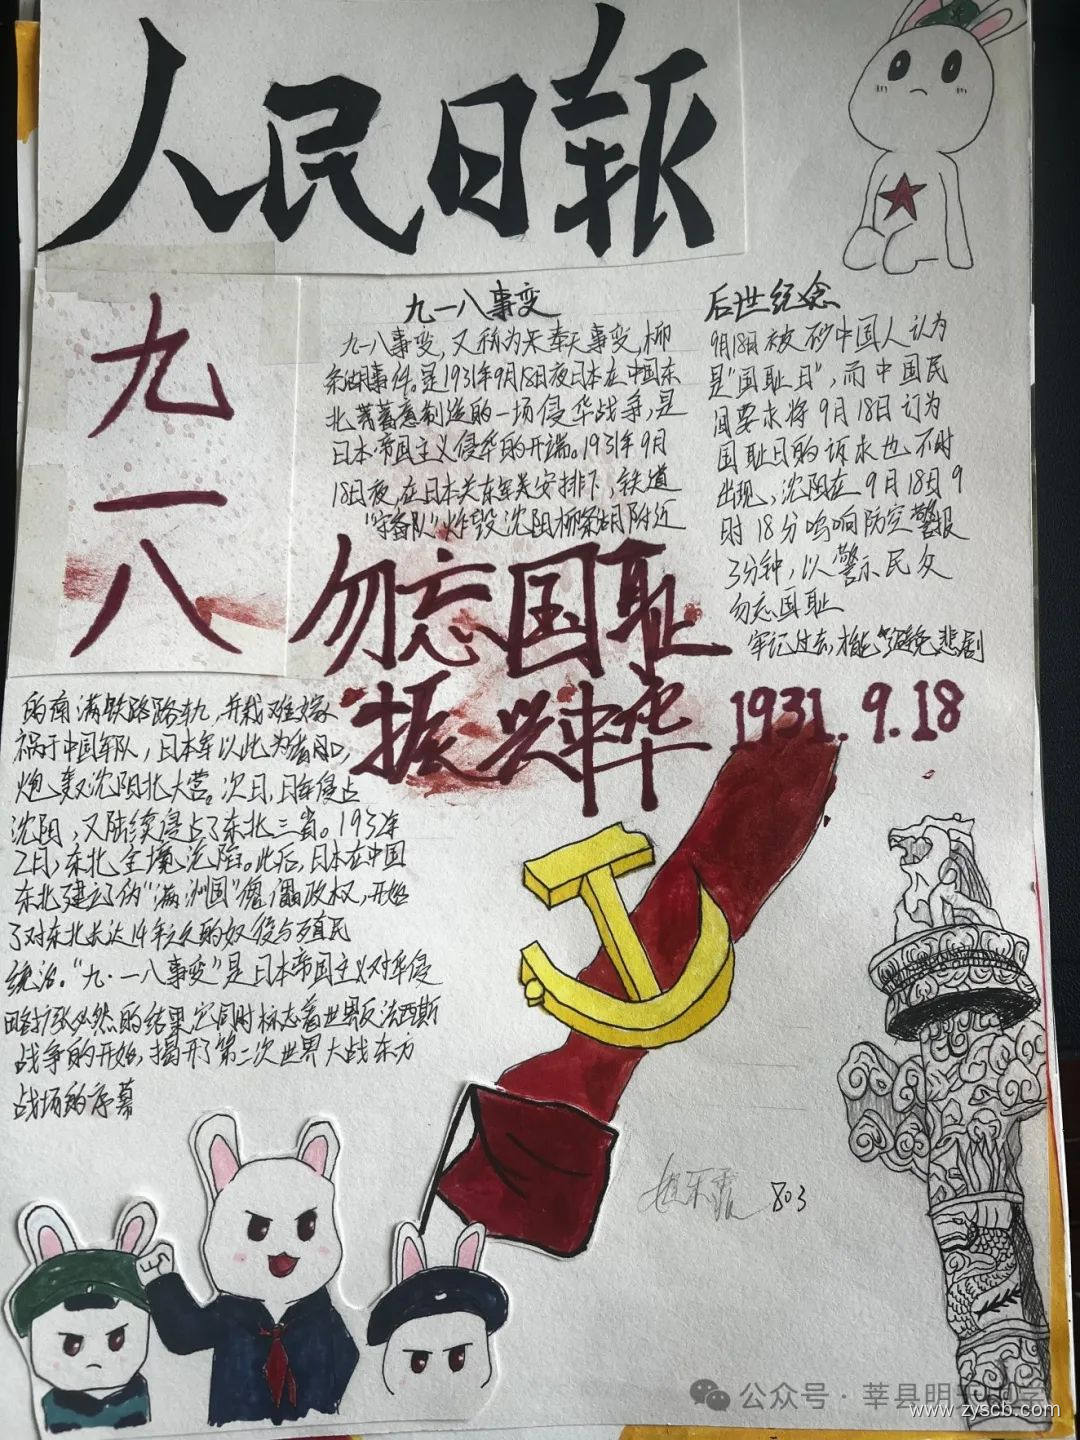 人民日報
九一八
九一八事变
九一八事变，又称为奉天事变，柳
条湖事件。是1931年9月18日夜日本在中国东
北蓄意制造的一场侵华战争，是
日本帝国主义侵华的开端。1931年9月
18日夜，在日本关东军安排下，铁道
“守备队”炸毁沈阳柳条湖附近
的南满铁路路轨，并栽难嫁
祸于中国军队，日本军以此为借口，
炮轰沈阳北大营。次日，日军侵占
沈阳，又陆续侵占了东北三省。1932年
2月，东北全境沦陷。此后，日本在中国
东北建立了伪“满洲国”傀儡政权，开始
了对东北长达14年之久的奴役与殖民
统治。“九·一八事变”是日本帝国主义对华侵
略扩张必然的结果，它同时标志着世界反法西斯
战争的开始，揭开了第二次世界大战东方
战场的序幕
后世纪念
9月18日被 中国人认为
是“国耻日”，而中国民
间要求将9月18日订为
国耻日的诉求也不时
出现，沈阳在9月18日9
时18分鸣响防空警报
3分钟，以警示民众
勿忘国耻
牢记过去，才能避免悲剧
勿忘国耻
振兴中华
1931.9.18
803
公众号·莘县明天中学
www.zyscb.com